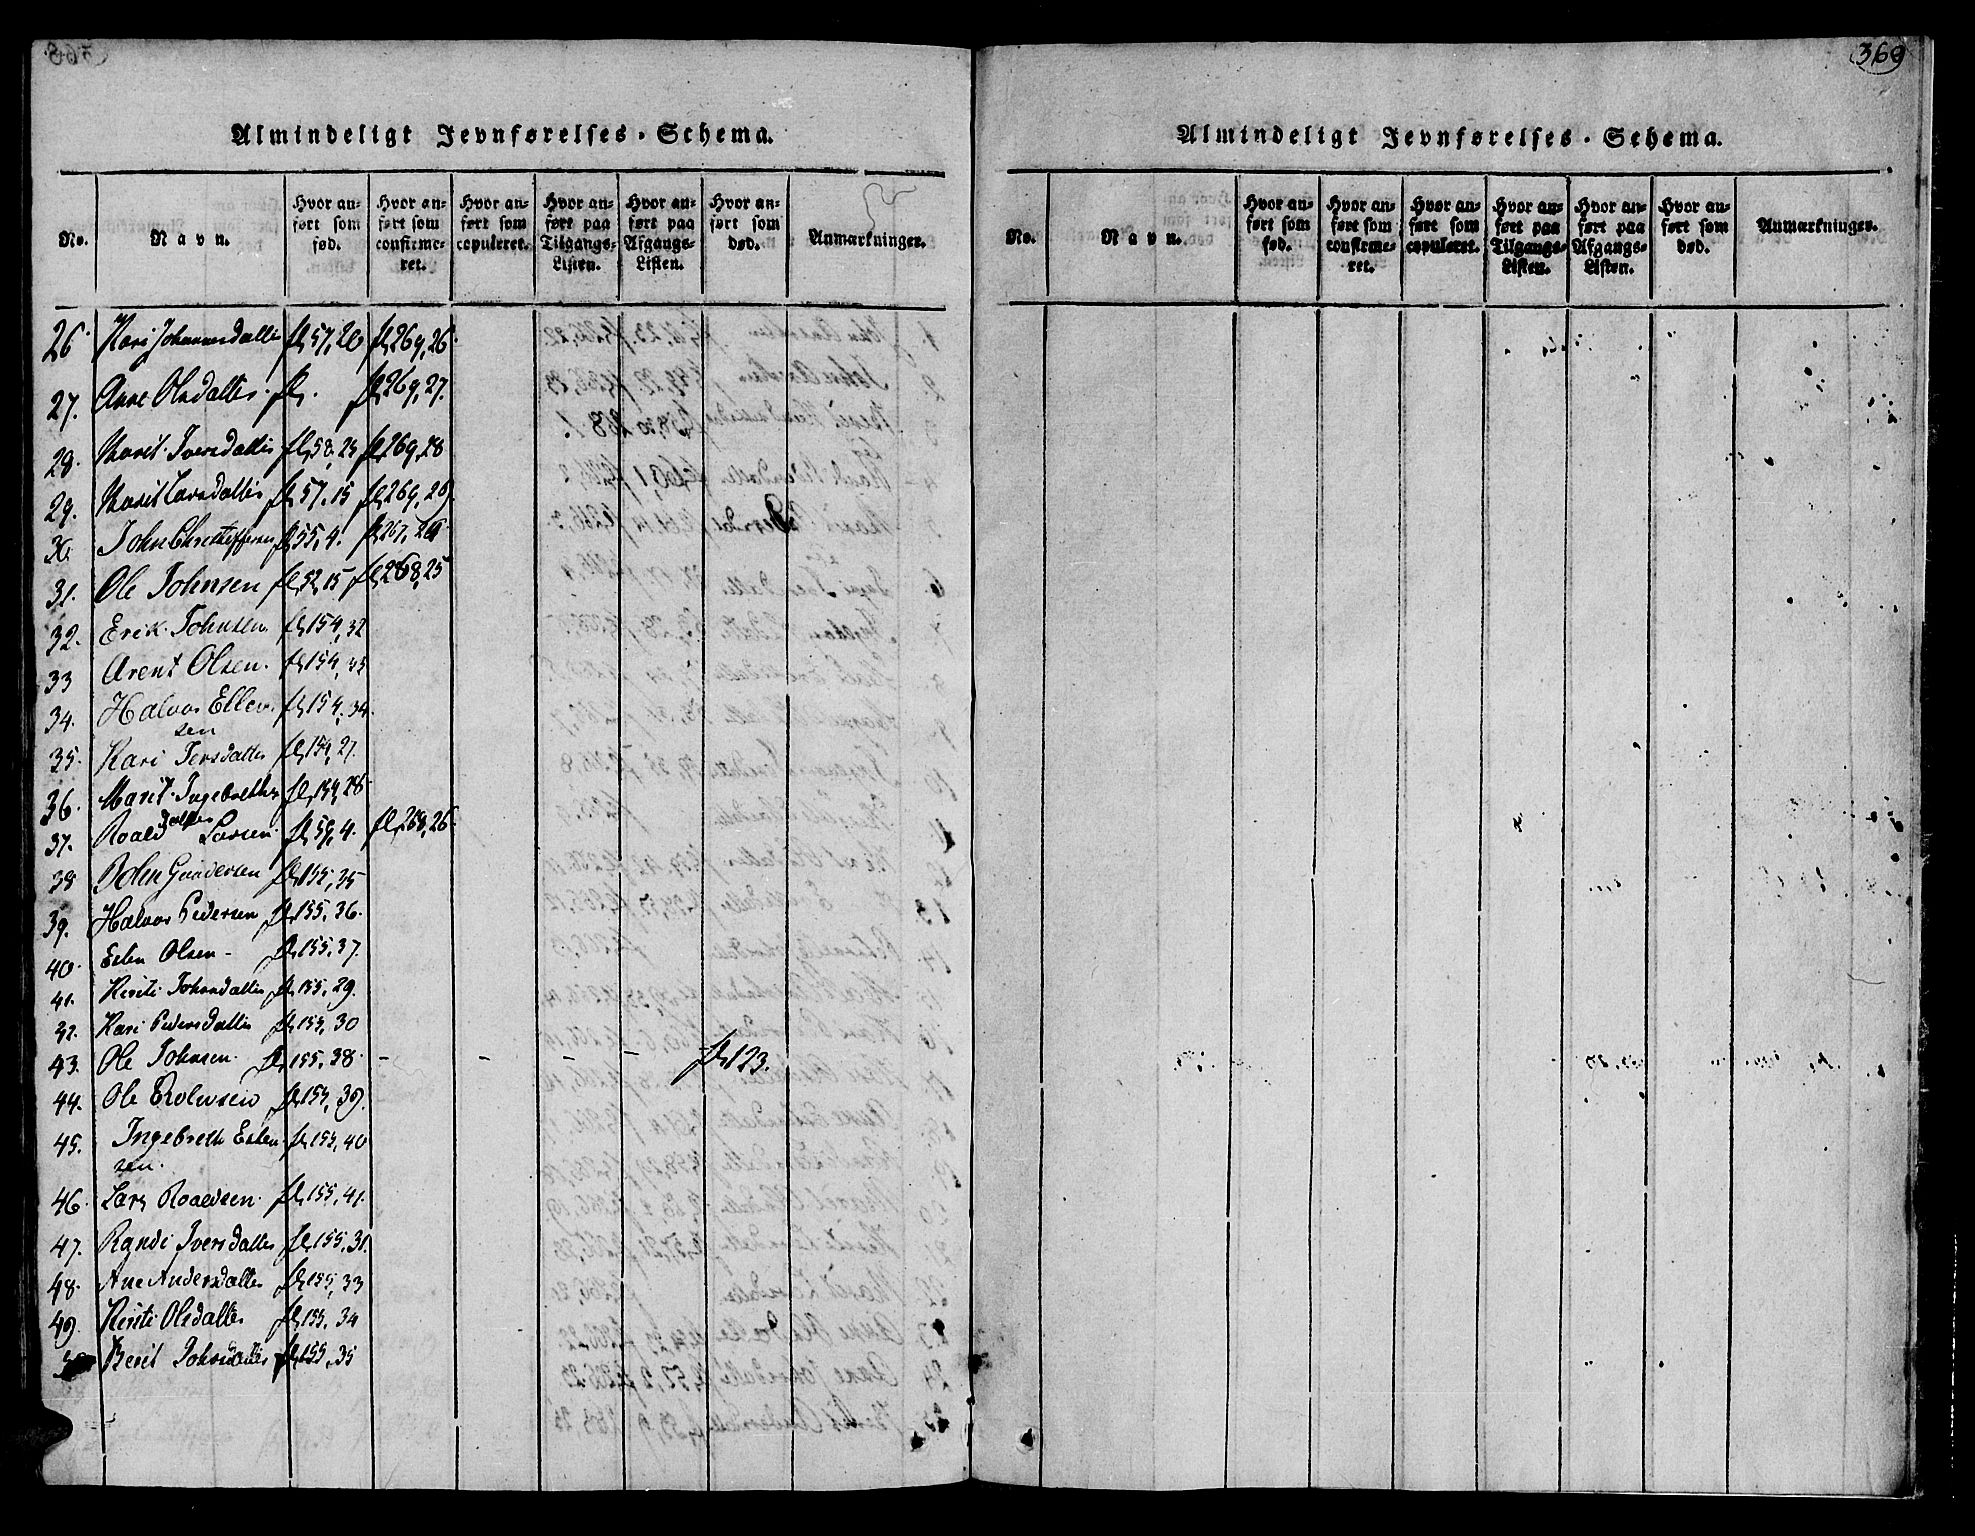 Almindeligt Jevnførelses-Schema.
No.
Navn.
Hvor anført som fød.
Hvor anført som confirmeret.
Hvor anført som copuleret.
Hvor anført paa Tilgangs-Listen.
Hvor anført paa Afgangs-Listen.
Hvor anført som død.
Anmærkninger.
26. Kari Johannesdatter fl 57, 26 fl 269, 26.
27. Anne Olsdatter fl. fl 269, 27.
28. Marit Iversdatter fl 58, 25 fl 269, 28
29. Marit Larsdatter fl 57, 15 fl 269, 29
30. John fl 55, 4.
31. Ole Johnsen fl 52, 15 fl 268, 25
32. Erik Johnsen fl 154, 32
33 Arent Olsen. fl 154, 33
34. Halvor Ellev
sen fl 154, 34.
35. Kari Iversdatter fl 154, 27.
36. Marit Ingebreths
datter fl 154, 28
37. Roald Larsen. fl 59, 4. fl 268, 26.
38 John Gundersen fl 155, 35
39. Halvor Pedersen fl 155, 36.
40. Esten Olsen - fl 155, 37.
41. Kirsti Johnsdatter fl 155, 29.
42. Kari Pedersdatter fl 155, 30
43. Ole Johnsen. fl 155, 38 - - - - fl 123.
44. Ole fl 155, 39.
45. Ingebreth Esten
sen. fl 155, 40
46. Lars Roaldsen. fl 155, 41.
47. Randi Iversdatter fl 155, 31.
48. Ane Andersdatter fl 155, 33
49. Kirsti Olsdatter fl 155, 34
50 Berit Johnsdatter fl 155, 35
369
Almindeligt Jevnførelses-Schema.
No.
Navn.
Hvor anført som fød.
Hvor anført som confirmeret.
Hvor anført som copuleret.
Hvor anført paa Tilgangs-Listen.
Hvor anført paa Afgangs-Listen.
Hvor anført som død.
Anmærkninger.